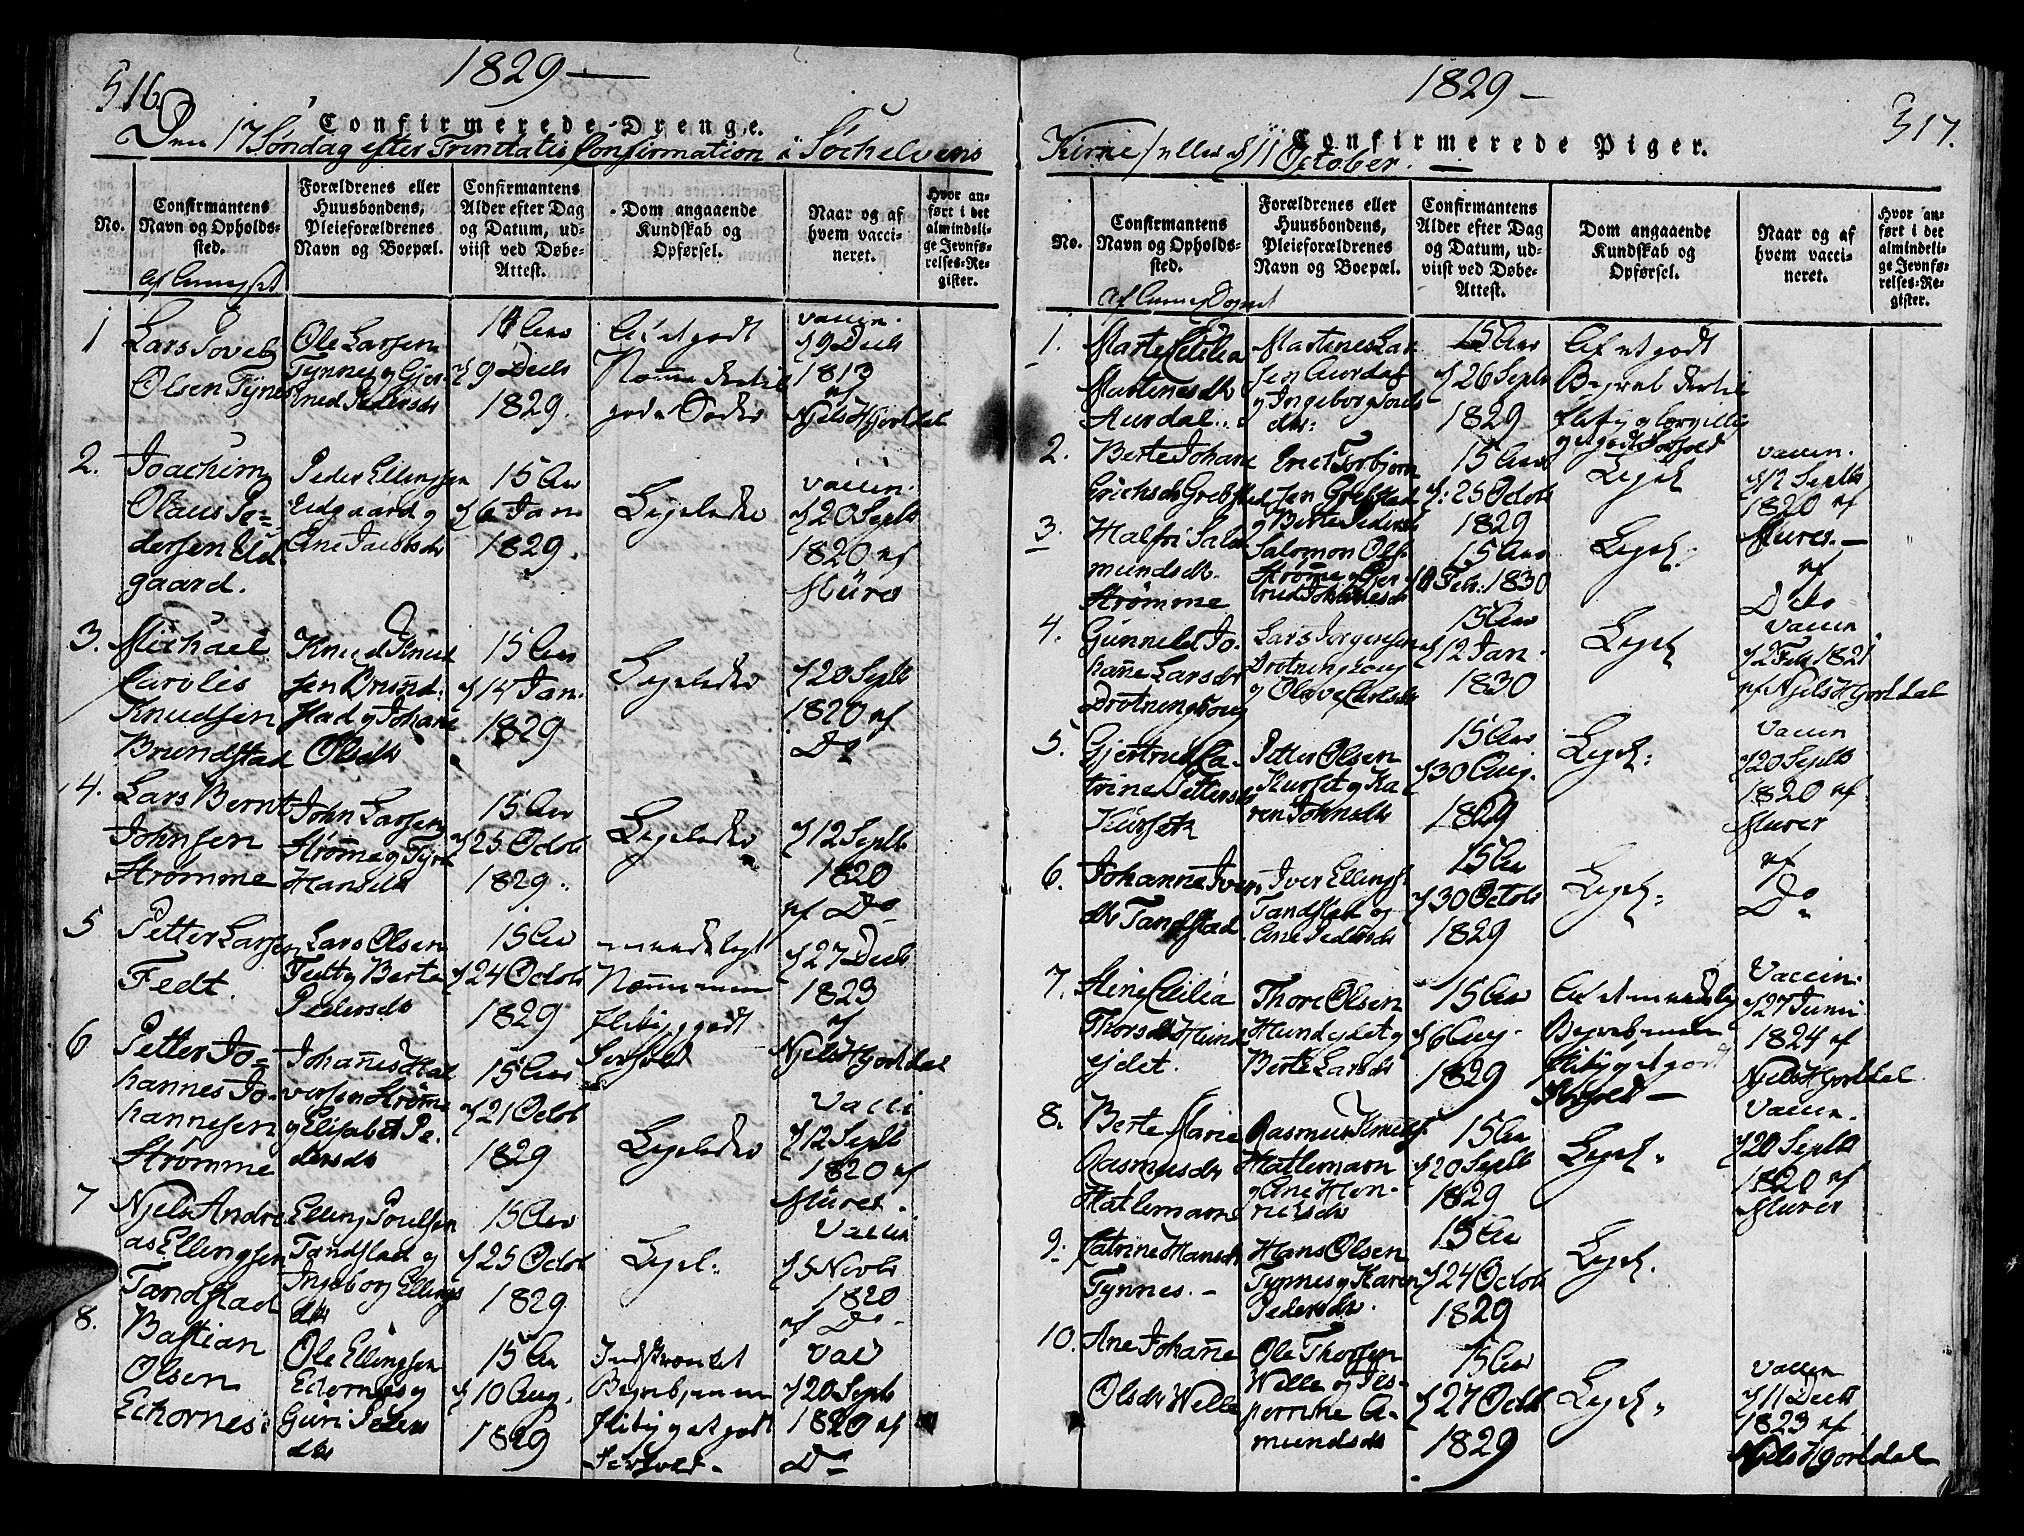 516.
1829 —
Confirmerede Drenge.
Den 17 Søndag efter Trinitatis Confirmation i Søchelvens
No.
Confirmantens Navn og Opholdssted.
Forældrenes eller Huusbondens, Pleieforældrenes Navn og Boepæl.
Confirmantens Alder efter Dag og Datum, udviist ved Døbe-Attest.
Dom angaaende Kundskab og Opførsel.
Naar og af hvem vaccineret.
Hvor anført i det almindelige Jevnførelses-Register.
1
Lars Sovel
Olsen Tynes
Ole Larsen
Tynnes og Gjer
trued Pedersdr
14 Aar
d 9 Decb
1829.
Af et godt
Nemme dertil
gode Sæder
vaccin.
d 9 Decb
1813
af
Njels Hjortdal
2.
Joachim
Olaus Pe=
dersen Ud
gaard.
Peder Ellingsen
Udgaard og
Ane Jacobsdr
15 Aar
d 6 Jan
1829.
Ligeledes
vaccin.
d 20 Septb
1820 af
Murer
3.
Michael
Carolis
Knudsen
Brundstad
Knud Knud
sen Brund-
stad og Johane
Olsdr
15 Aar
d 14 Jan.
1829
Ligeledes
d 20 Septb
1820 af
Do
4.
Lars Bernt
Johnsen
Strømme
John Larsen
Strømme og
Hansdr
15 Aar
d 25 Octob
1829.
Ligeledes
d 12 Septb
1820
af Do
5
Petter Larsen
Fedt.
Lars Olsen
Fedt og Berte
Pedersdr
15 Aar
d 24 Octob
1829
maadeligt
Nemme men
flitig og godt
Forhold
d 27 Decb
1823
af
Njels Hjortdal
6
Petter Jo=
hannes Jo-
hannesen
Strømme
Johannes Hal
versen Strømme
og Elisabet Pe-
dersdr
15 Aar
d 21 Octob
1829
Ligeledes
Vacci
d 12 Septb
1820 af
Murer.
7
Njels Andre
as Ellingsen
Tandstad
Elling Poulsen
Tandstad og
Ingeborg Ellings
dr
15 Aar
d 25 Octob
1829
Ligel.
Vaccin
d 5 Novbr
1820
af Do
8.
Bastian
Olsen
Echornes:
Ole Ellingsen
Echornes og
Guri Peders
dr
15 Aar
d 10 Aug.
1829
Indskrænket
Begreb, men
flitig og et godt
Forhold.
vac
d 20 Septb
1820 af
Do
1829 —
317.
Confirmerede Piger.
Kirne d 11 October. —
No.
Confirmantens Navn og Opholdssted.
Forældrenes eller Huusbondens, Pleieforældrenes Navn og Boepæl.
Confirmantens Alder efter Dag og Datum, udviist ved Døbe-Attest.
Dom angaaende Kundskab og Opførsel.
Naar og af hvem vaccineret.
Hvor anført i det almindelige Jevnførelses-Register.
1.
Marte Cecilia
Martinesdr
Aurdal.
Martines Lar
sen Aurdal
og Ingeborg
dr:
15 Aar
d 26 Septb
1829
Af et godt
Begreb dertil
flitig og
Forhold
2.
Berte Johane
Erichsdr Grebstad
Erich Torbjorn
sen Grebstad
og Berte Pedersdr
15 Aar
d: 25 Octob
1829
Ligel
vaccin.
d 12 Septb
1820 af
Murer. —
3.
Malfri Salo
mundsdr.
Strømme
Salomon Ols
Strømme og Gjer
trud Johanesdr
15 Aar
d Feb. 1830
Ligel.
af
Dito
4.
Gunneld Jo-
hane Larsdr
Drotninghoug
Lars Jorgensen
Drotninghoug
og Olave Carlsdr
15 Aar
d 12 Jan.
1830
Ligel
Vaccin
d 2 Feb 1821
af Njels Hjortdal
5.
Gjertrued Ca-
trine Pettersdr
Kurset
Petter Olsen
Kurset og Ka
ren Johnsdr
15 Aar
d 30 Aug.
1829
Ligel.
Vaccin
d 20 Septb
1820 af
Murer
6.
Johanne Iver
dr Tandstad
Iver Ellings
Tandstad og
Ane Pedersdr
15 Aar
d 30 Octob
1829
Ligel.
af
Do
7.
Stine Cecilia
Thorsdr Hund
ejdet.
Thore Olsen
Hundejdet og
Berte Larsdr
15 Aar
d 6 Aug.
1829
Af et maadelig
Begreb, men
flitig og et godt
Forhold —
Vaccin.
d 27 Juni
1824 af
Njels Hjortdal
8.
Berte Marie
Rasmusdr
Hatlemarn
Rasmus Knuds
Hatlemarn
og Ane Hen-
richsdr
15 Aar
d 20 Septb
1829
Ligel.
Vaccin.
d 20 Septb
1820 af
Murer
9.
Catrine Hansdr
Tynnes. —
Hans Olsen
Tynnes og Karen
Pedersdr.
15 Aar
d 24 Octob
1829
Ligel.
10.
Ane Johane
Olsdr Welle
Ole Thorsen
Welle og Jes-
permine A-
mundsdr
15 Aar
d 27 Octob
1829
Ligel.
Vaccin
d 11 Decb
1823 af
Njels Hjortdal